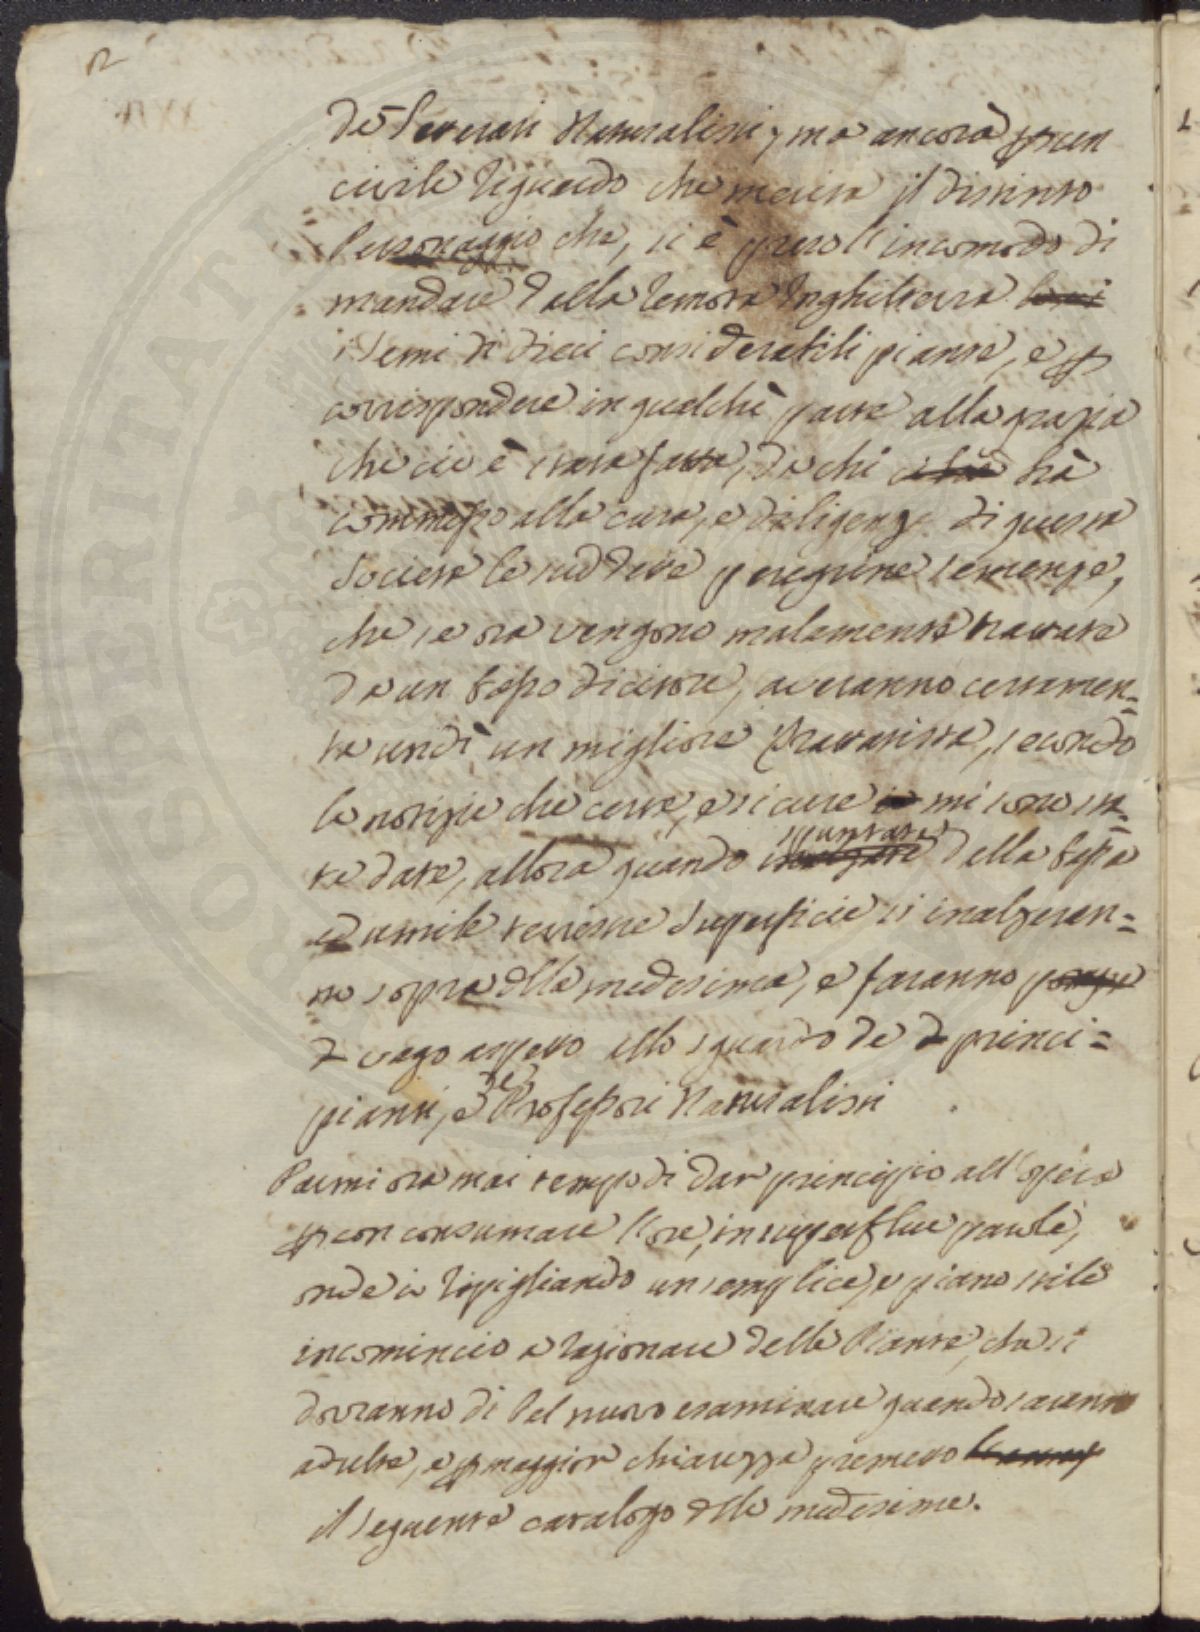 2
de Periti Naturalisti, ma ancora per un
civile riguardo che merita il distinto
Personaggio che, si è preso l'incomodo di
mandare dalla remota Inghilterra
i semi di dieci considerabili piante, e per
corrispondere in qualche parte alla grazia
che ci è stata fatta, da chi hà
commesso alla cura, e diligenza di questa
Società le suddette peregrine semenze,
che se ora vengono malamente trattate
da un basso dicitore, averanno certamen=
te un dì un migliore Trattatista, secondo
le notizie che certe, e sicure mi sono sta=
te date, allora quando spuntate della bassa
ed umile terrestre superficie si inalzeran=
no sopra della medesima, e faranno
vago aspetto allo sguardo de princi=
pianti, e de Professori Naturalisti
Parmi ora mai tempo di dar principio all'opera
per non consumare l'ore, in superflue parole,
onde io ripigliando un semplice, e piano stile
incomincio a ragionare delle Piante, che si
dovranno di bel nuovo esaminare quando saranno
adulte, e per maggior chiarezza premetto
il seguente catalogo delle medesime.
SOSPERITATI